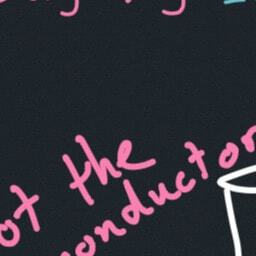 ot the
onductor